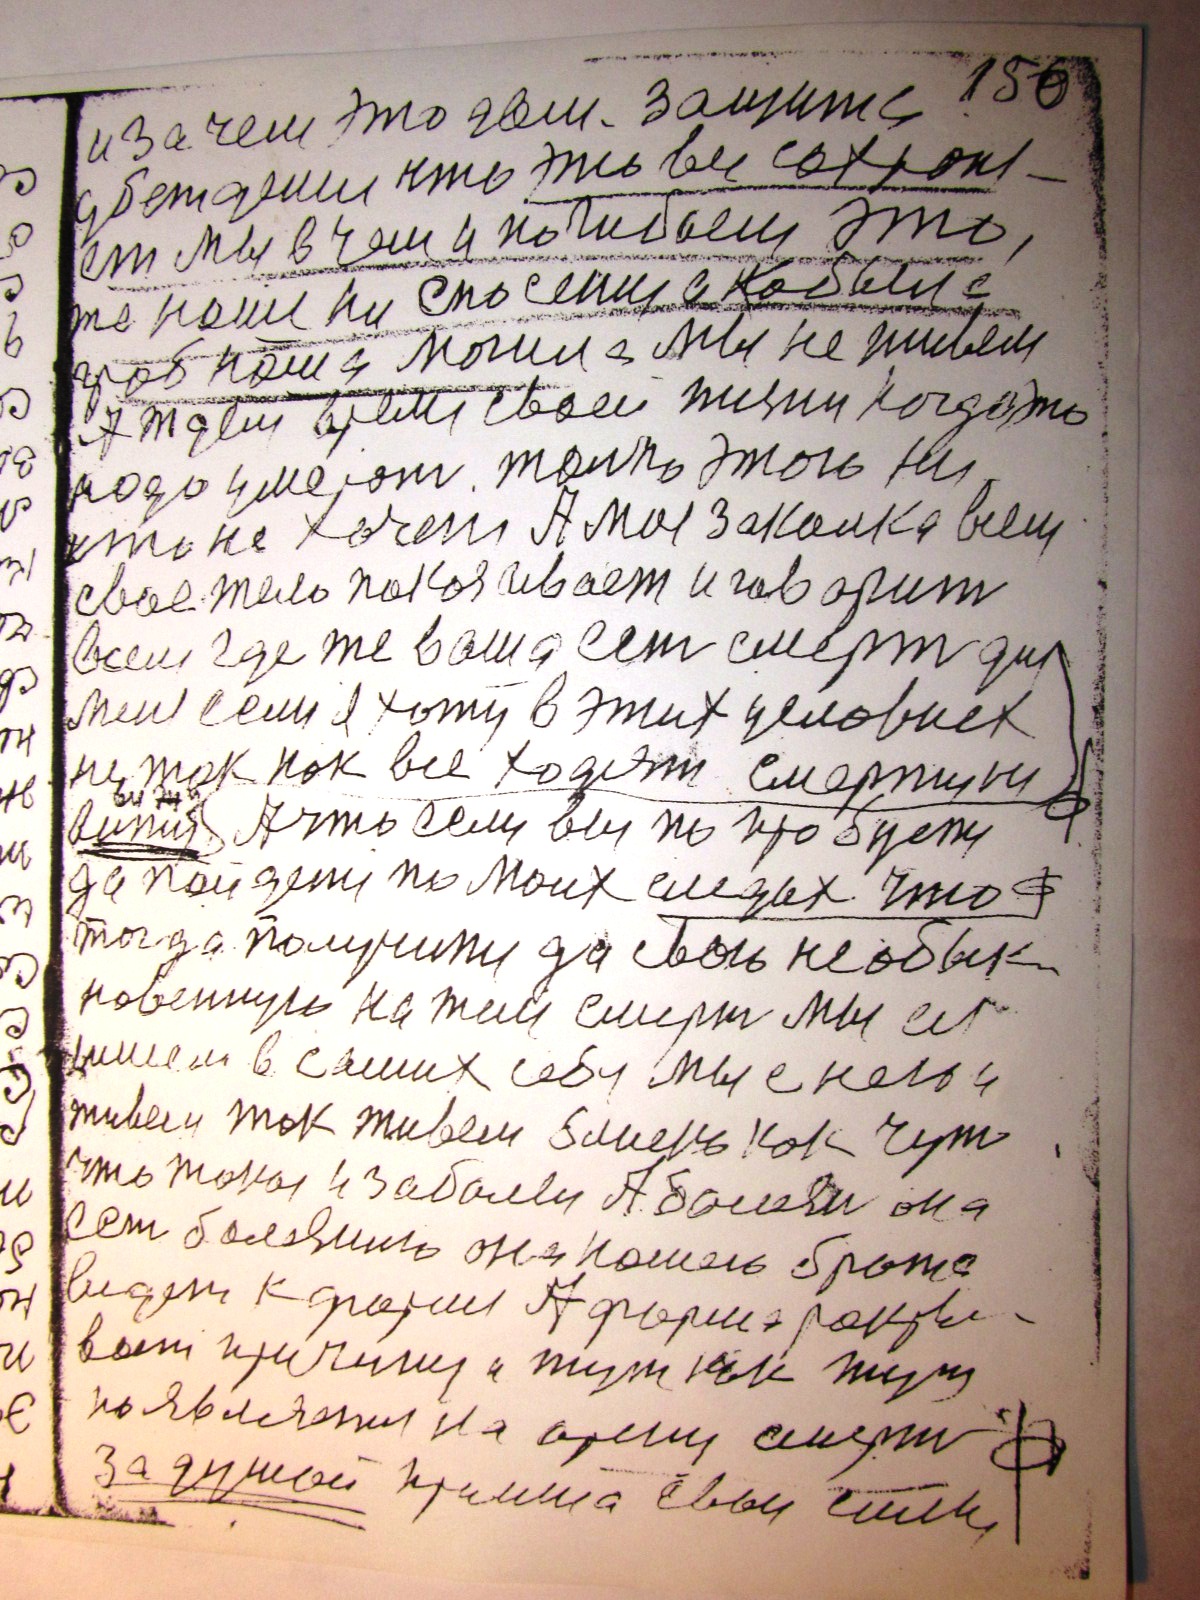 156
и зачем это дали. Защита
убеждении что это вы сохрони-
ет мы в чем и погибаем это,
же наши ни спасении а кобыла
гроб наша могила мы не живем
А ждем время своей жизни когда то
надо умерат. толко этого ни
хто не хочет А моя закалка всем
свое тело показивает и говорит
всем где же ваша сет смерт для
мене если я хожу в этих условиех
не так как все ходят смерти ни
вижу А что если вы попробуети
да пойдети по моих следах что
тогда получити да свою необык-
новенную на тем смерт мы её
ищем в самих себя мы с нею и
живем так живем близко как чут
что такои и заболеи А болези она
ест болезнию она нашего брата
ведет к фарми А фарма ракры-
вает причину и тут как тут
появляяти на арену смерт
за душой